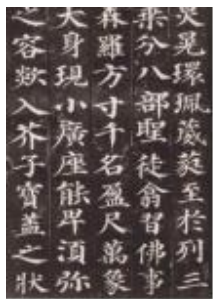 炅晃環珮葳蕤至於列三
乘分八部聖徒翕習佛事
森羅方寸千名盈尺萬象
大身現小廣座能卑須弥
之容欻入芥子寶蓋之狀